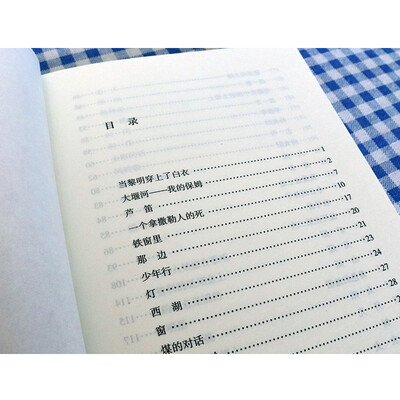 目 录
当黎明穿上了白衣 ………… 1
大堰河——我的保姆 ………… 2
芦 笛 ………… 7
一个拿撒勒人的死 ………… 10
铁窗里 ………… 17
那 边 ………… 20
少年行 ………… 21
灯 ………… 23
西 湖 ………… 24
窗 ………… 27
煤的对话 ………… 28